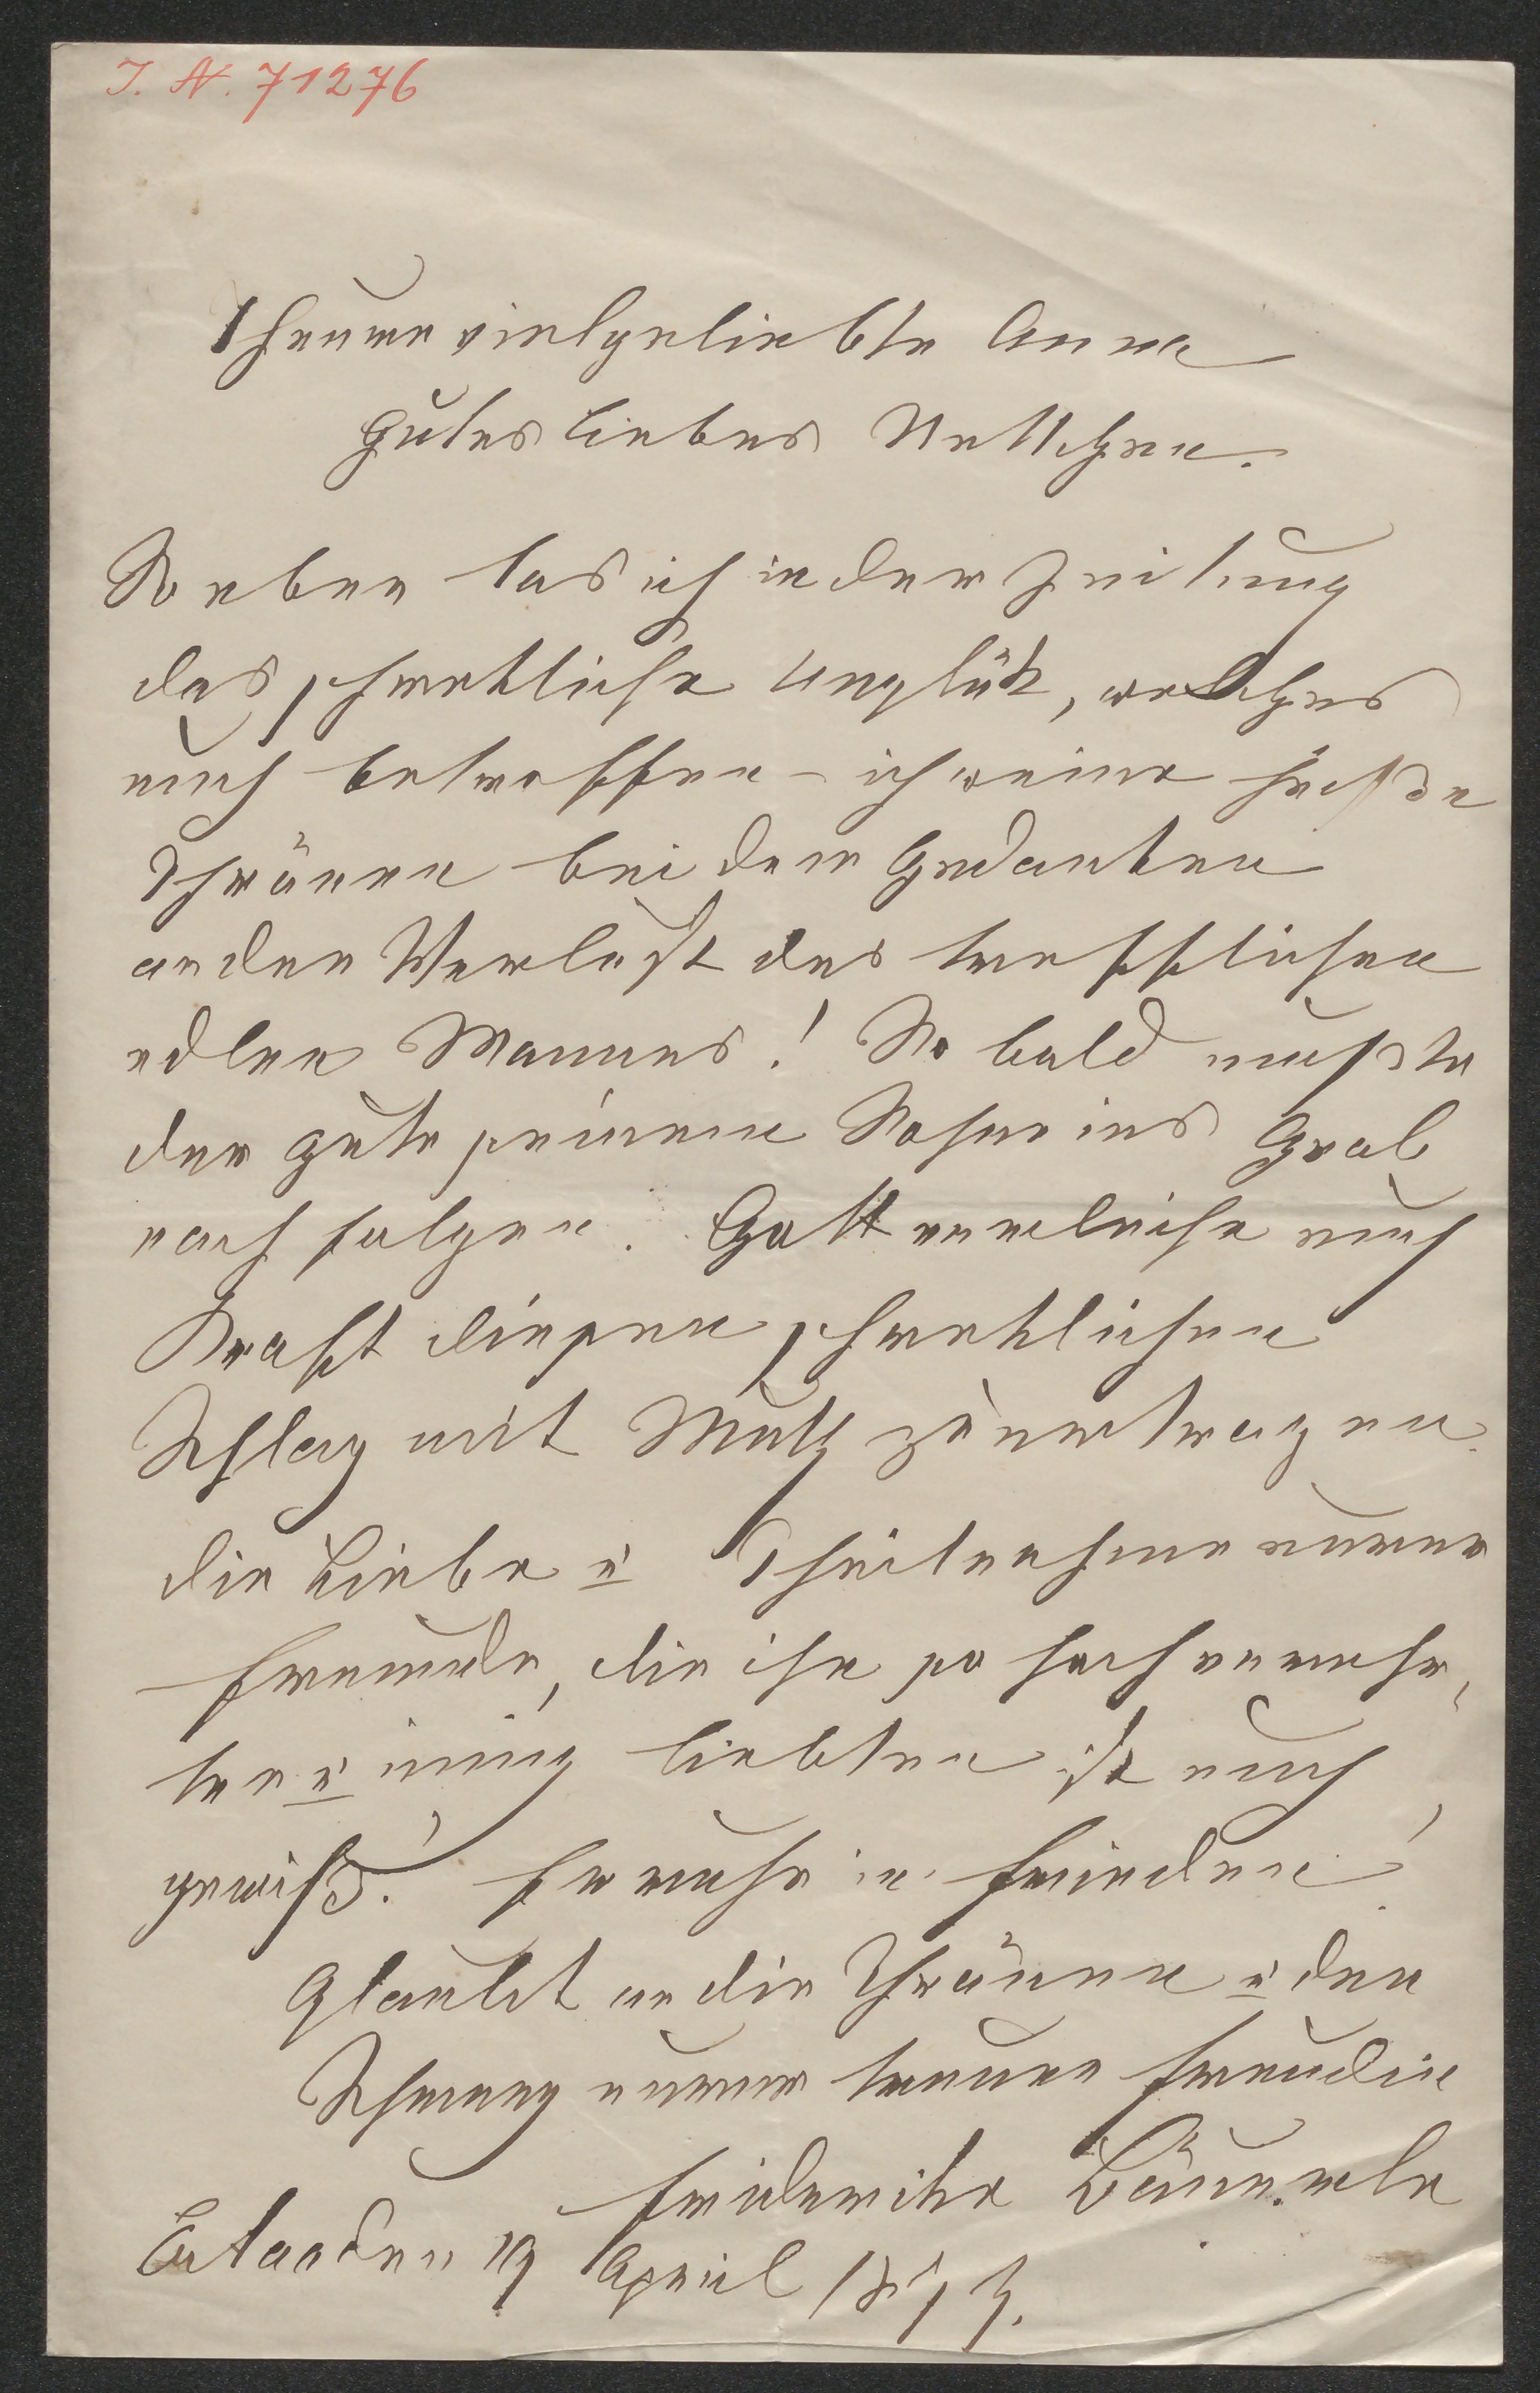 I. N. 71276
Theure vielgeliebte Anna
gutes liebes Nettchen.
So eben las ich in der Zeitung
das schrekliche Unglük, welches
euch betroffen – ich weine heiße
Thränen bei dem Gedanken
an den Verlust des trefflichen
edlen Mannes! So bald mußte
der gute seinem Sohne ins Grab
nach folgen. Gott verleihe euch
Kraft diesen schreklichen
Schlag mit Muth zu ertragen.
die Liebe u Theilnahme eurer
Freunde, die ihn so hoch verehr„
ten u innig liebten ist euch
gewiß! Er ruhe in Frieden!
Glaubt an die Thränen u den
Schmerz eurer treuen Freudin
Friderike Bäuerle
19 April 1873.